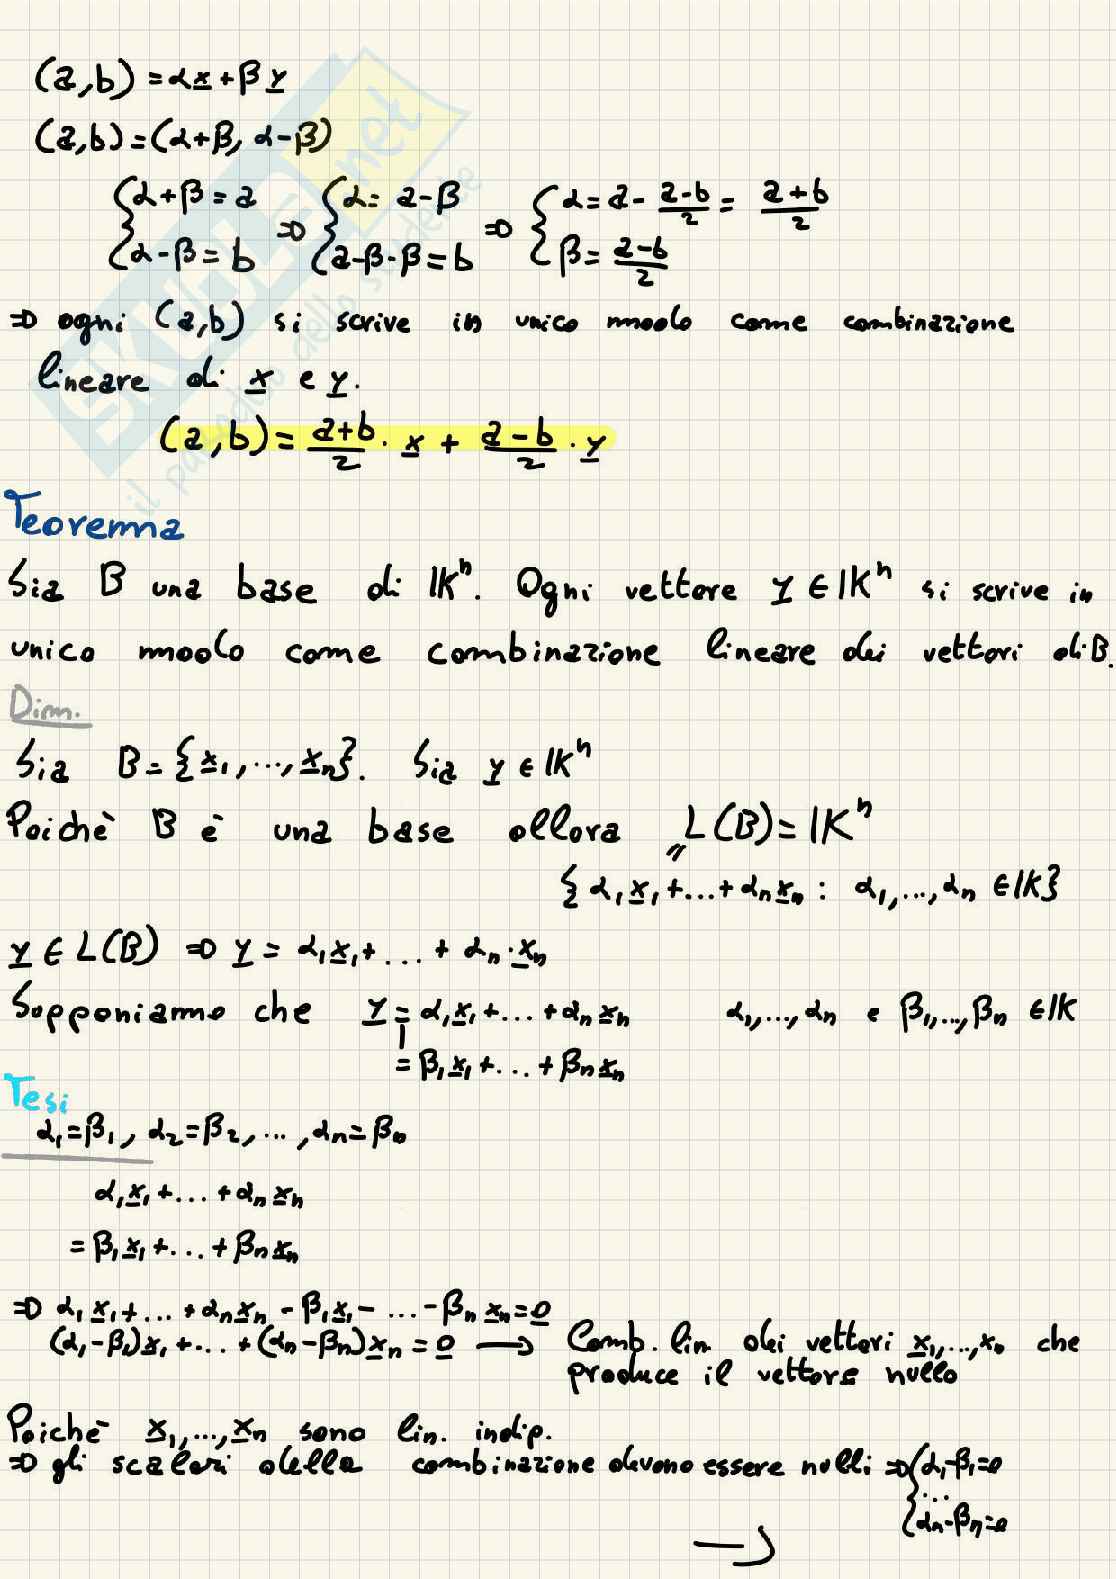 (a,b) = αx + βy
(a,b) = (α+β, α-β)
{α+β = a ⇒ {α = a-β ⇒ {α = a - (a-b)/2 = (a+b)/2
{α-β = b {a-β-β = b {β = (a-b)/2
⇒ ogni (a,b) si scrive in unico modo come combinazione
lineare di x e y.
(a,b) = (a+b)/2 · x + (a-b)/2 · y
Teorema
Sia B una base di IKⁿ. Ogni vettore y ∈ IKⁿ si scrive in
unico modo come combinazione lineare dei vettori di B.
Dim.
Sia B = {x₁,...,xₙ}. Sia y ∈ IKⁿ
Poichè B è una base allora L(B) = IKⁿ
"
{α₁x₁+...+αₙxₙ : α₁,...,αₙ ∈ IK}
y ∈ L(B) ⇒ y = α₁x₁+...+αₙ·xₙ
Supponiamo che y = α₁x₁+...+αₙxₙ α₁,...,αₙ e β₁,...,βₙ ∈ IK
= β₁x₁+...+βₙxₙ
Tesi
α₁=β₁, α₂=β₂, ..., αₙ=βₙ
α₁x₁+...+αₙxₙ
= β₁x₁+...+βₙxₙ
⇒ α₁x₁+...+αₙxₙ - β₁x₁ - ... - βₙxₙ = 0
(α₁-β₁)x₁+...+(αₙ-βₙ)xₙ = 0 → Comb. lin. dei vettori x₁,...,xₙ che
produce il vettore nullo
Poichè x₁,...,xₙ sono lin. indip.
⇒ gli scalari della combinazione devono essere nulli ⇒ {α₁-β₁=0
...
αₙ-βₙ=0
→
SKUOLA.net
il paradiso dello studente